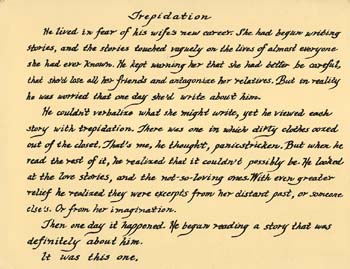 Trepidation
He lived in fear of his wife's new career. She had begun writing
stories, and the stories touched vaguely on the lives of almost everyone
she had ever known. He kept warning her that she had better be careful,
that she'd lose all her friends and antagonize her relatives. But in reality
he was worried that one day she'd write about him.
He couldn't verbalize what she might write, yet he viewed each
story with trepidation. There was one in which dirty clothes oozed
out of the closet. That's me, he thought, panicstricken. But when he
read the rest of it, he realized that it couldn't possibly be. He looked
at the love stories, and the not-so-loving ones. With even greater
relief he realized they were excerpts from her distant past, or someone
else's. Or from her imagination.
Then one day it happened. He began reading a story that was
definitely about him.
It was this one.